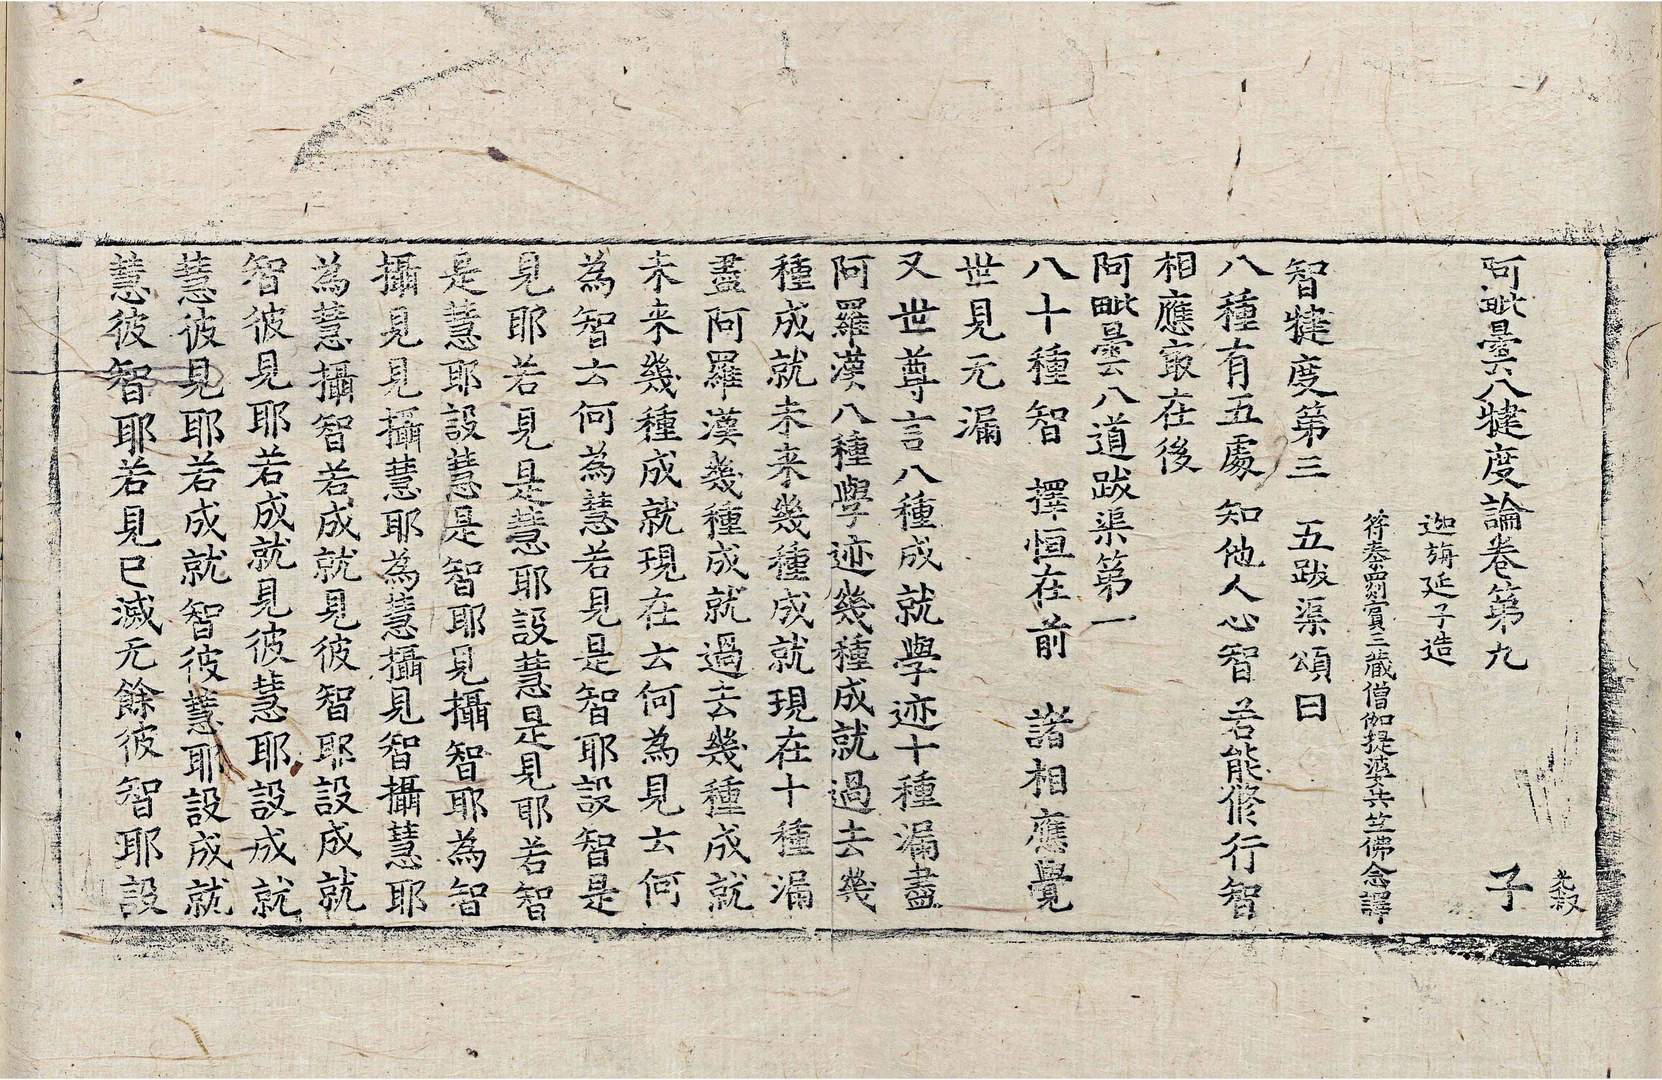 阿毗曇八犍度論卷第九　子
迦旃延子造
符秦罽賓三藏僧伽提婆共竺佛念譯
智犍度第三　五跋渠頌曰
八種有五處　知他人心智　若能修行智
相應㝡在後
阿毗曇八道跋渠第一
八十種智　擇恒在前　諸相應覺
世見无漏
又世尊言八種成就學迹十種漏盡
阿羅漢八種學迹幾種成就過去幾
種成就未来幾種成就現在十種漏
盡阿羅漢幾種成就過去幾種成就
未来幾種成就現在云何為見云何
為智云何為慧若見是智耶設智是
見耶若見是慧耶設慧是見耶若智
是慧耶設慧是智耶見攝智耶為智
攝見見攝慧耶為慧攝見智攝慧耶
為慧攝智若成就見彼智耶設成就
智彼見耶若成就見彼慧耶設成就
慧彼見耶若成就智彼慧耶設成就
慧彼智耶若見已滅无餘彼智耶設